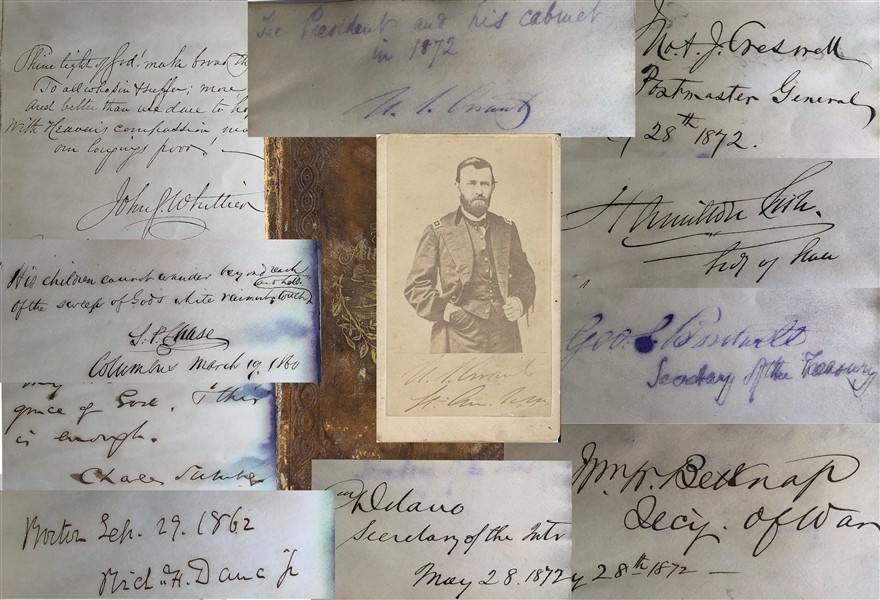 Thine light of God! make broad th
To all who sin & suffer; more
and better than we dare to ho
With Heaven's compassion ma
our longings poor!
John G. Whittier
The President and his cabinet
in 1872
U. S. Grant
Jno. A. J. Creswell
Postmaster General
28th 1872.
Hamilton Fish.
Secy of State
Geo. S. Boutwell
Secretary of the Treasury
His children cannot wander beyond reach
and hold
Of the sweep of God's white raiment, touch
S. P. Chase
Columbus March 19, 1860
grace of God. This
is enough.
Charles Sumner
Boston Sep. 29. 1862
Rich. H. Dana Jr
U. S. Grant
Lt. Gen. U.S.A.
Delano
Secretary of the Inte
May 28. 1872
Wm. W. Belknap
Secy. of War
y 28th 1872 —